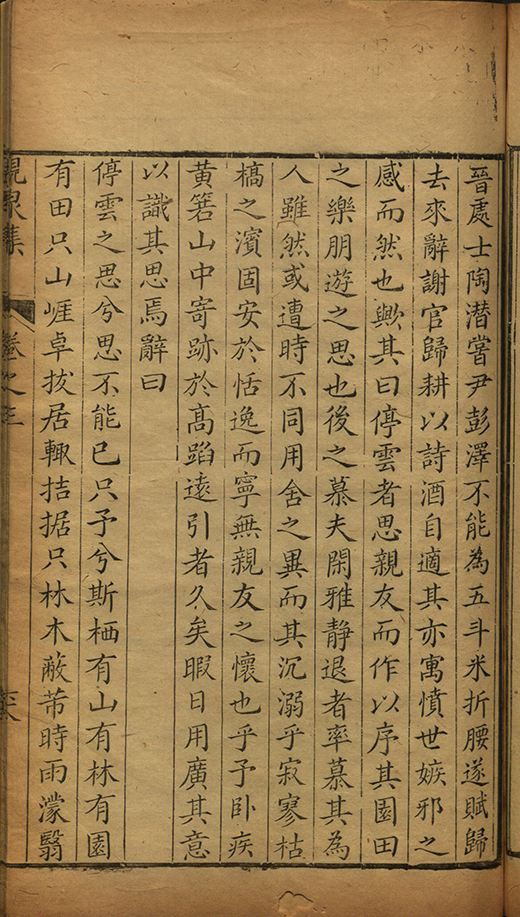 晉處士陶潛嘗尹彭澤不能為五斗米折腰遂賦歸
去來辭謝官歸耕以詩酒自適其亦寓憤世嫉邪之
感而然也歟其曰停雲者思親友而作以序其園田
之樂朋遊之思也後之慕夫閑雅静退者率慕其為
人雖然或遭時不同用舍之異而其沉溺乎寂寥枯
槁之濱固安於恬逸而寧無親友之懷也乎予卧疾
黄箬山中寄跡於高蹈遠引者久矣暇日用廣其意
以識其思焉辭曰
停雲之思兮思不能已只予兮斯栖有山有林有園
有田只山崕卓拔居輙拮据只林木蔽芾時雨濛翳
集
卷之三